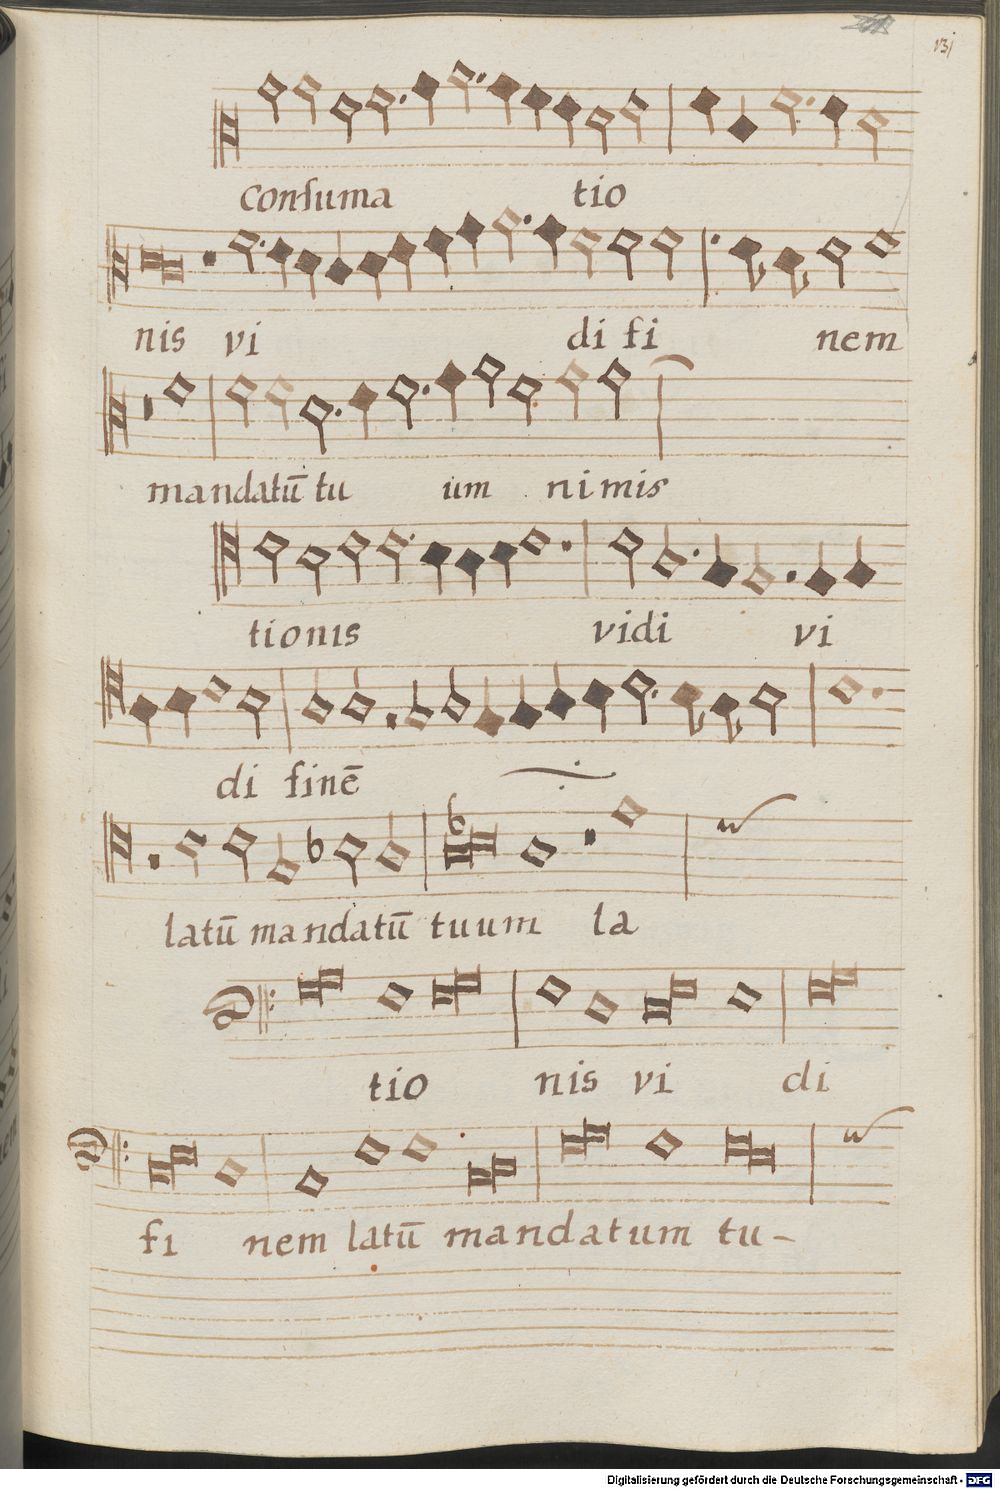 131
consuma tio
nis vi di fi nem
mandatū tu um nimis
tionis vidi vi
di finē
latū mandatū tuum la
tio nis vi di
fi nem latū mandatum tu-
Digitalisierung gefördert durch die Deutsche Forschungsgemeinschaft - DFG